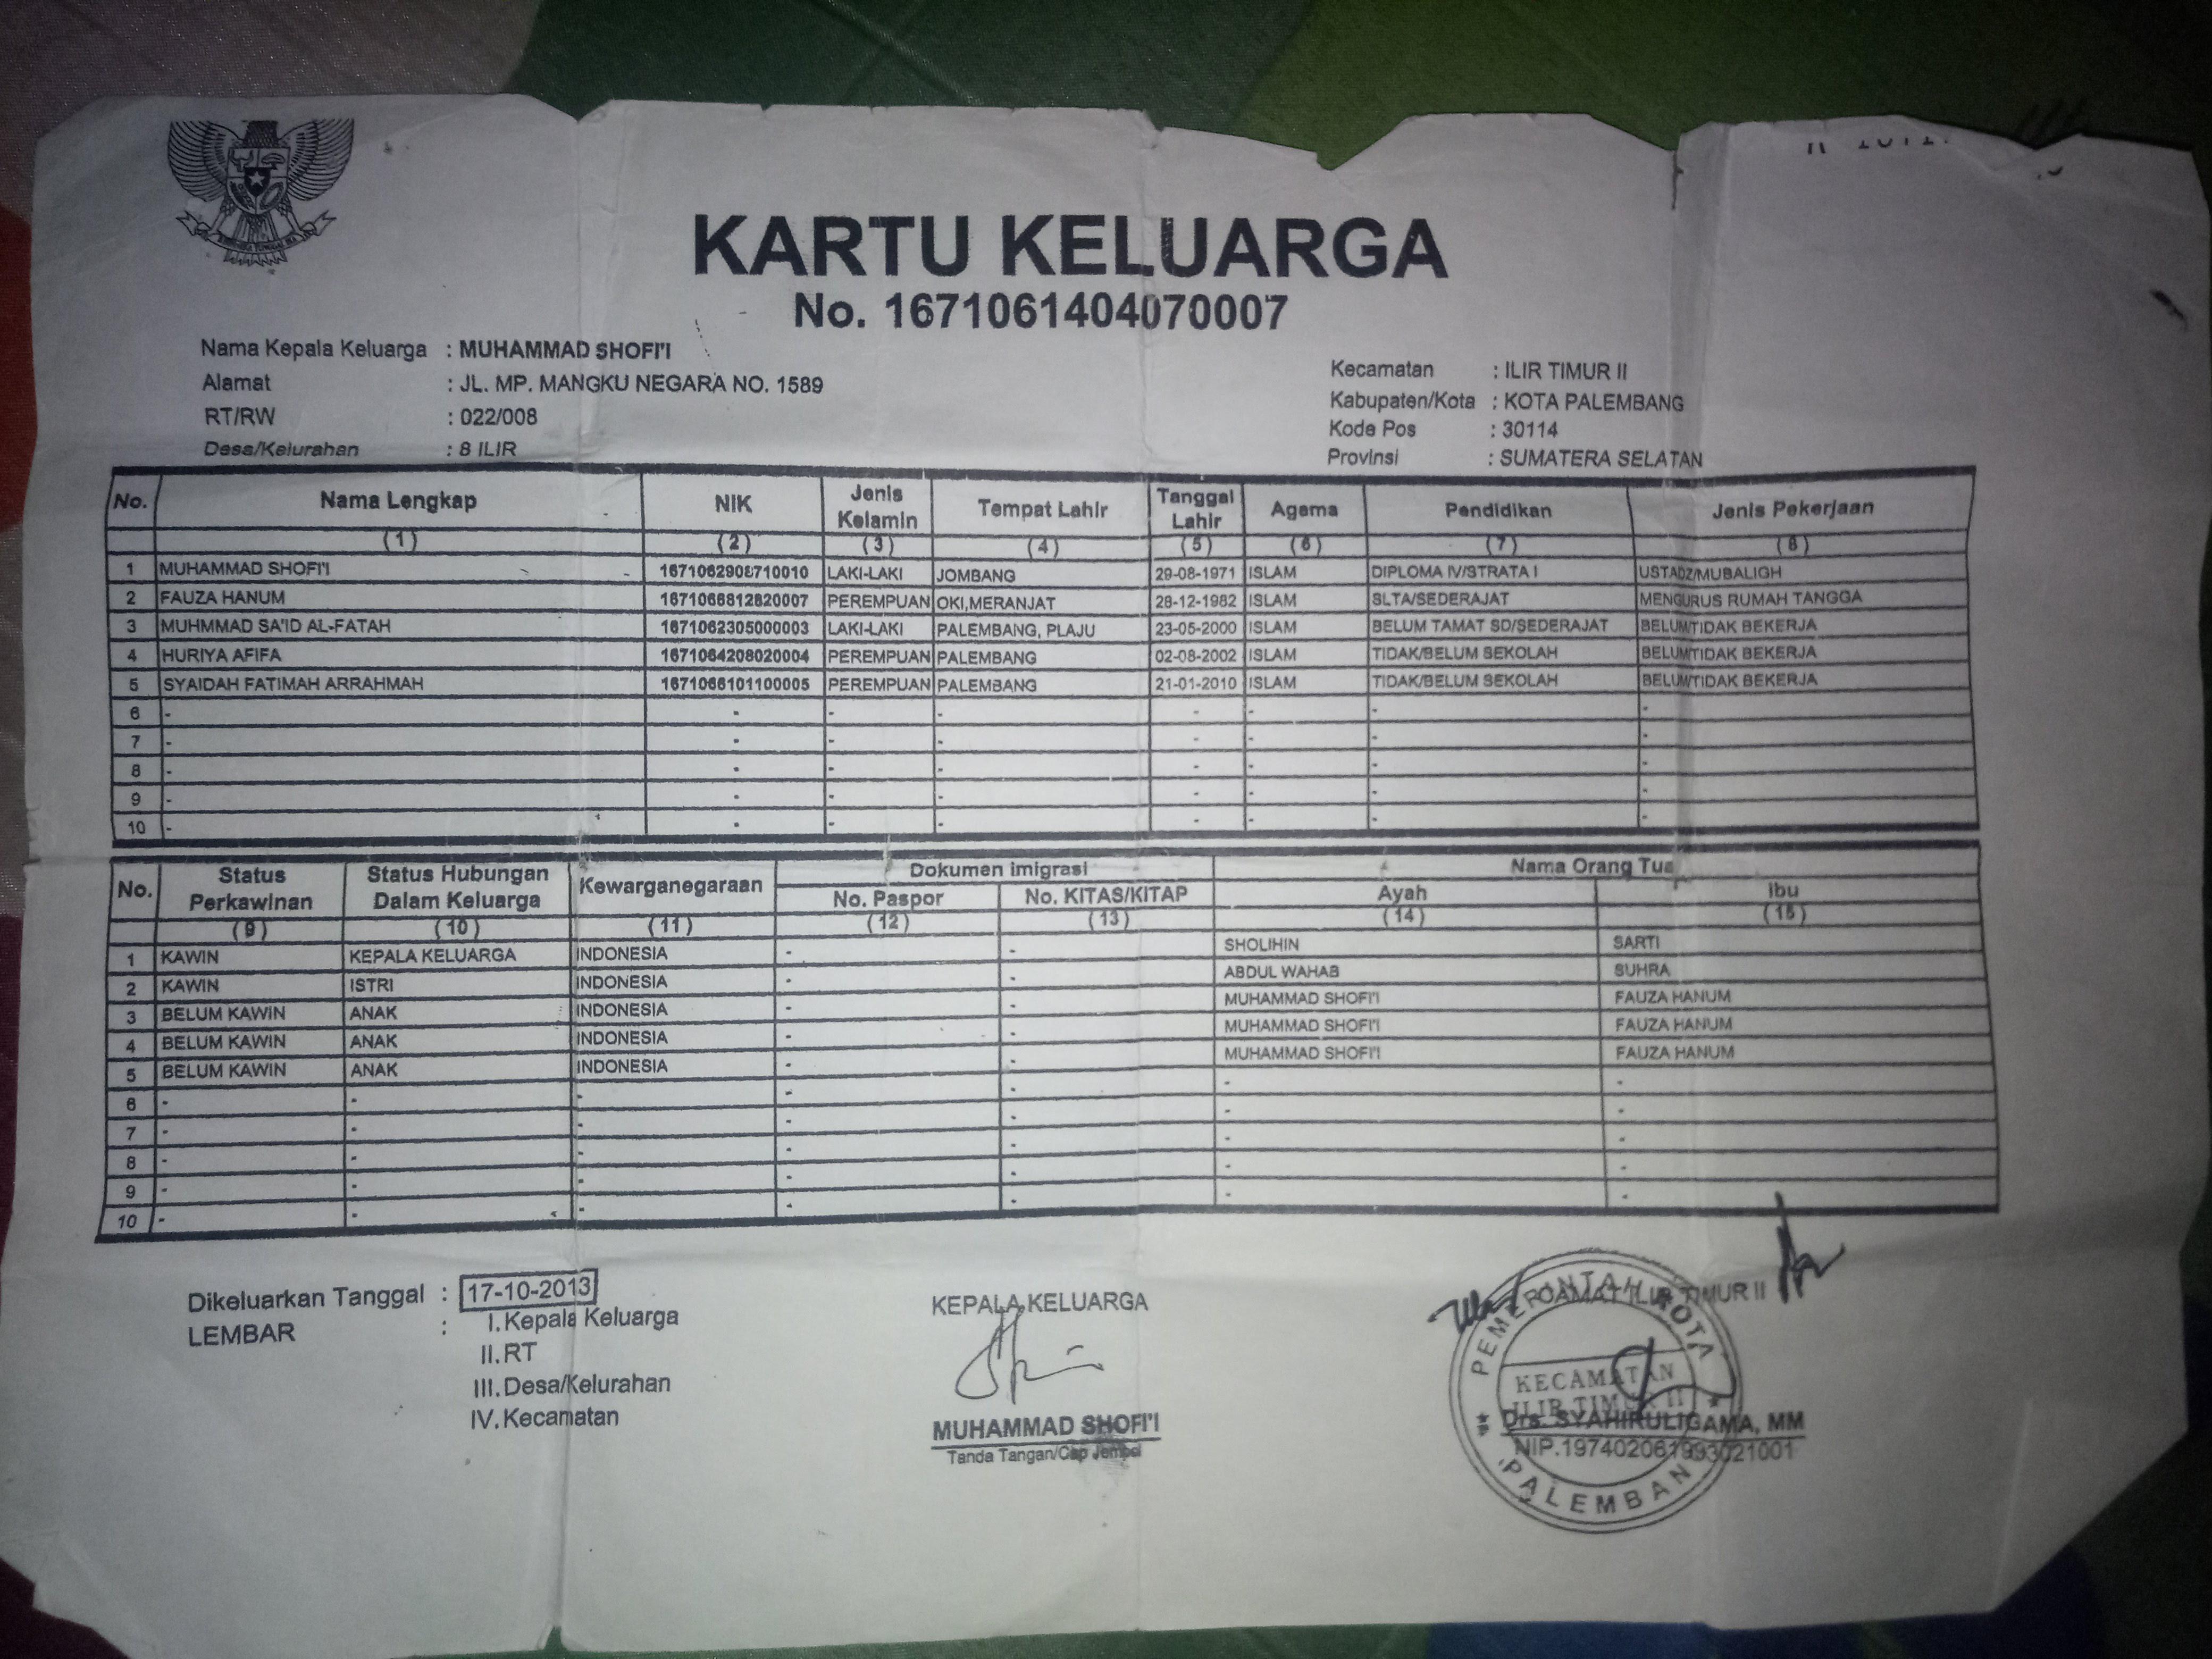 KARTU KELUARGA
No. 1671061404070007
Nama Kepala Keluarga : MUHAMMAD SHOFI'I
Alamat : JL. MP. MANGKU NEGARA NO. 1589
RT/RW : 022/008
Desa/Kelurahan : 8 ILIR
Kecamatan : ILIR TIMUR II
Kabupaten/Kota : KOTA PALEMBANG
Kode Pos : 30114
Provinsi : SUMATERA SELATAN
No. Nama Lengkap NIK Jenis Kelamin Tempat Lahir Tanggal Lahir Agama Pendidikan Jenis Pekerjaan
(1) (2) (3) (4) (5) (6) (7) (8)
1 MUHAMMAD SHOFI'I 1671062908710010 LAKI-LAKI JOMBANG 29-08-1971 ISLAM DIPLOMA IV/STRATA I USTADZ/MUBALIGH
2 FAUZA HANUM 1671066812820007 PEREMPUAN OKI,MERANJAT 28-12-1982 ISLAM SLTA/SEDERAJAT MENGURUS RUMAH TANGGA
3 MUHMMAD SA'ID AL-FATAH 1671062305000003 LAKI-LAKI PALEMBANG, PLAJU 23-05-2000 ISLAM BELUM TAMAT SD/SEDERAJAT BELUM/TIDAK BEKERJA
4 HURIYA AFIFA 1671064208020004 PEREMPUAN PALEMBANG 02-08-2002 ISLAM TIDAK/BELUM SEKOLAH BELUM/TIDAK BEKERJA
5 SYAIDAH FATIMAH ARRAHMAH 1671066101100005 PEREMPUAN PALEMBANG 21-01-2010 ISLAM TIDAK/BELUM SEKOLAH BELUM/TIDAK BEKERJA
6 - - - - - - - -
7 - - - - - - - -
8 - - - - - - - -
9 - - - - - - - -
10 - - - - - - - -
No. Status Perkawinan Status Hubungan Dalam Keluarga Kewarganegaraan Dokumen imigrasi Nama Orang Tua
No. Paspor No. KITAS/KITAP Ayah Ibu
(9) (10) (11) (12) (13) (14) (15)
1 KAWIN KEPALA KELUARGA INDONESIA - - SHOLIHIN SARTI
2 KAWIN ISTRI INDONESIA - - ABDUL WAHAB SUHRA
3 BELUM KAWIN ANAK INDONESIA - - MUHAMMAD SHOFI'I FAUZA HANUM
4 BELUM KAWIN ANAK INDONESIA - - MUHAMMAD SHOFI'I FAUZA HANUM
5 BELUM KAWIN ANAK INDONESIA - - MUHAMMAD SHOFI'I FAUZA HANUM
6 - - - - - - -
7 - - - - - - -
8 - - - - - - -
9 - - - - - - -
10 - - - - - - -
Dikeluarkan Tanggal : 17-10-2013
LEMBAR : I. Kepala Keluarga
II. RT
III. Desa/Kelurahan
IV. Kecamatan
KEPALA KELUARGA
MUHAMMAD SHOFI'I
Tanda Tangan/Cap Jempol
CAMAT ILIR TIMUR II
PEMERINTAH KOTA
KECAMATAN
ILIR TIMUR II
Drs. SYAHIRULIGAMA, MM
NIP.197402061993021001
PALEMBANG